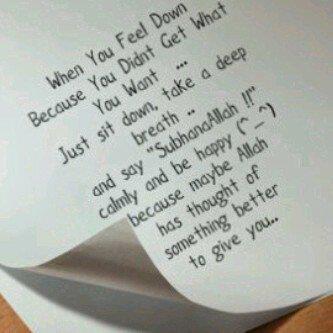 When You Feel Down
Because You Didnt Get What
You Want ...
Just sit down, take a deep
breath ..
and say "SubhanaAllah !!"
calmly and be happy (^_^)
because maybe Allah
has thought of
something better
to give you..